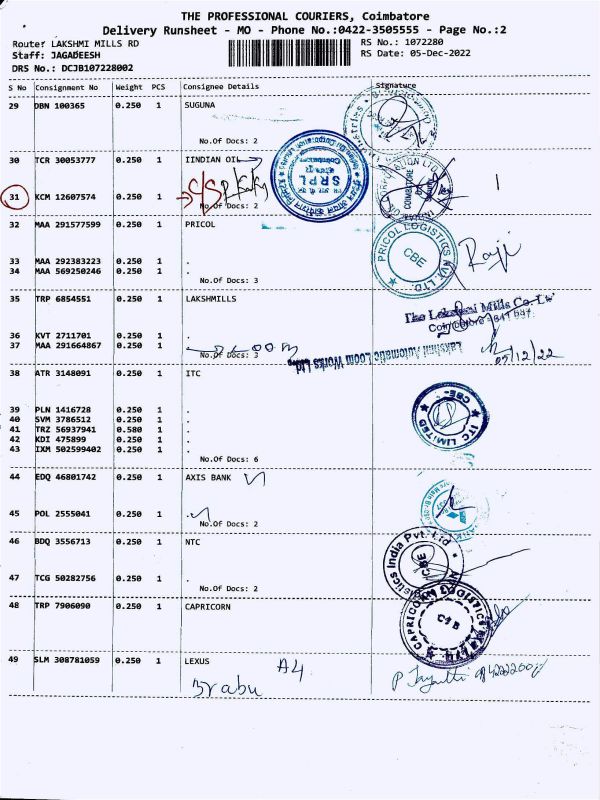 THE PROFESSIONAL COURIERS, Coimbatore
Delivery Runsheet - MO - Phone No.:0422-3505555 - Page No.:2
Route: LAKSHMI MILLS RD
RS No.: 1072280
Staff: JAGADEESH
RS Date: 05-Dec-2022
DRS No.: DCJB107228002
S No Consignment No Weight PCS Consignee Details Signature
29 DBN 100365 0.250 1 SUGUNA
No.Of Docs: 2
30 TCR 30053777 0.250 1 IINDIAN OIL
SRPL
31 KCM 12607574 0.250 1 .
No.Of Docs: 2
COIMBATORE
32 MAA 291577599 0.250 1 PRICOL
PRICOL LOGISTICS PVT. LTD.
CBE
Raji
33 MAA 292383223 0.250 1 .
34 MAA 569250246 0.250 1 .
No.Of Docs: 3
35 TRP 6854551 0.250 1 LAKSHMILLS
The Lakshmi Mills Co. Lt
36 KVT 2711701 0.250 1 .
37 MAA 291664867 0.250 1 .
No.Of Docs: 3
Lakshmi Automatic Loom Works Ltd.
05/12/22
38 ATR 3148091 0.250 1 ITC
39 PLN 1416728 0.250 1 .
40 SVM 3786512 0.250 1 .
41 TRZ 56937941 0.580 1 .
42 KDI 475899 0.250 1 .
43 IXM 502599402 0.250 1 .
No.Of Docs: 6
ITC LIMITED
CBE
44 EDQ 46801742 0.250 1 AXIS BANK
45 POL 2555041 0.250 1 .
No.Of Docs: 2
46 BDQ 3556713 0.250 1 NTC
India Pvt. Ltd
CBE
47 TCG 50282756 0.250 1 .
No.Of Docs: 2
48 TRP 7906090 0.250 1 CAPRICORN
CAPRICORN LOGISTICS
49 SLM 308781059 0.250 1 LEXUS
A4